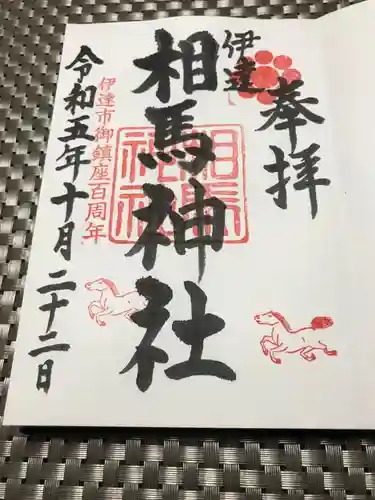 奉拝
伊達
相馬神社
伊達市御鎮座百周年
令和五年十月二十二日
相馬
神社